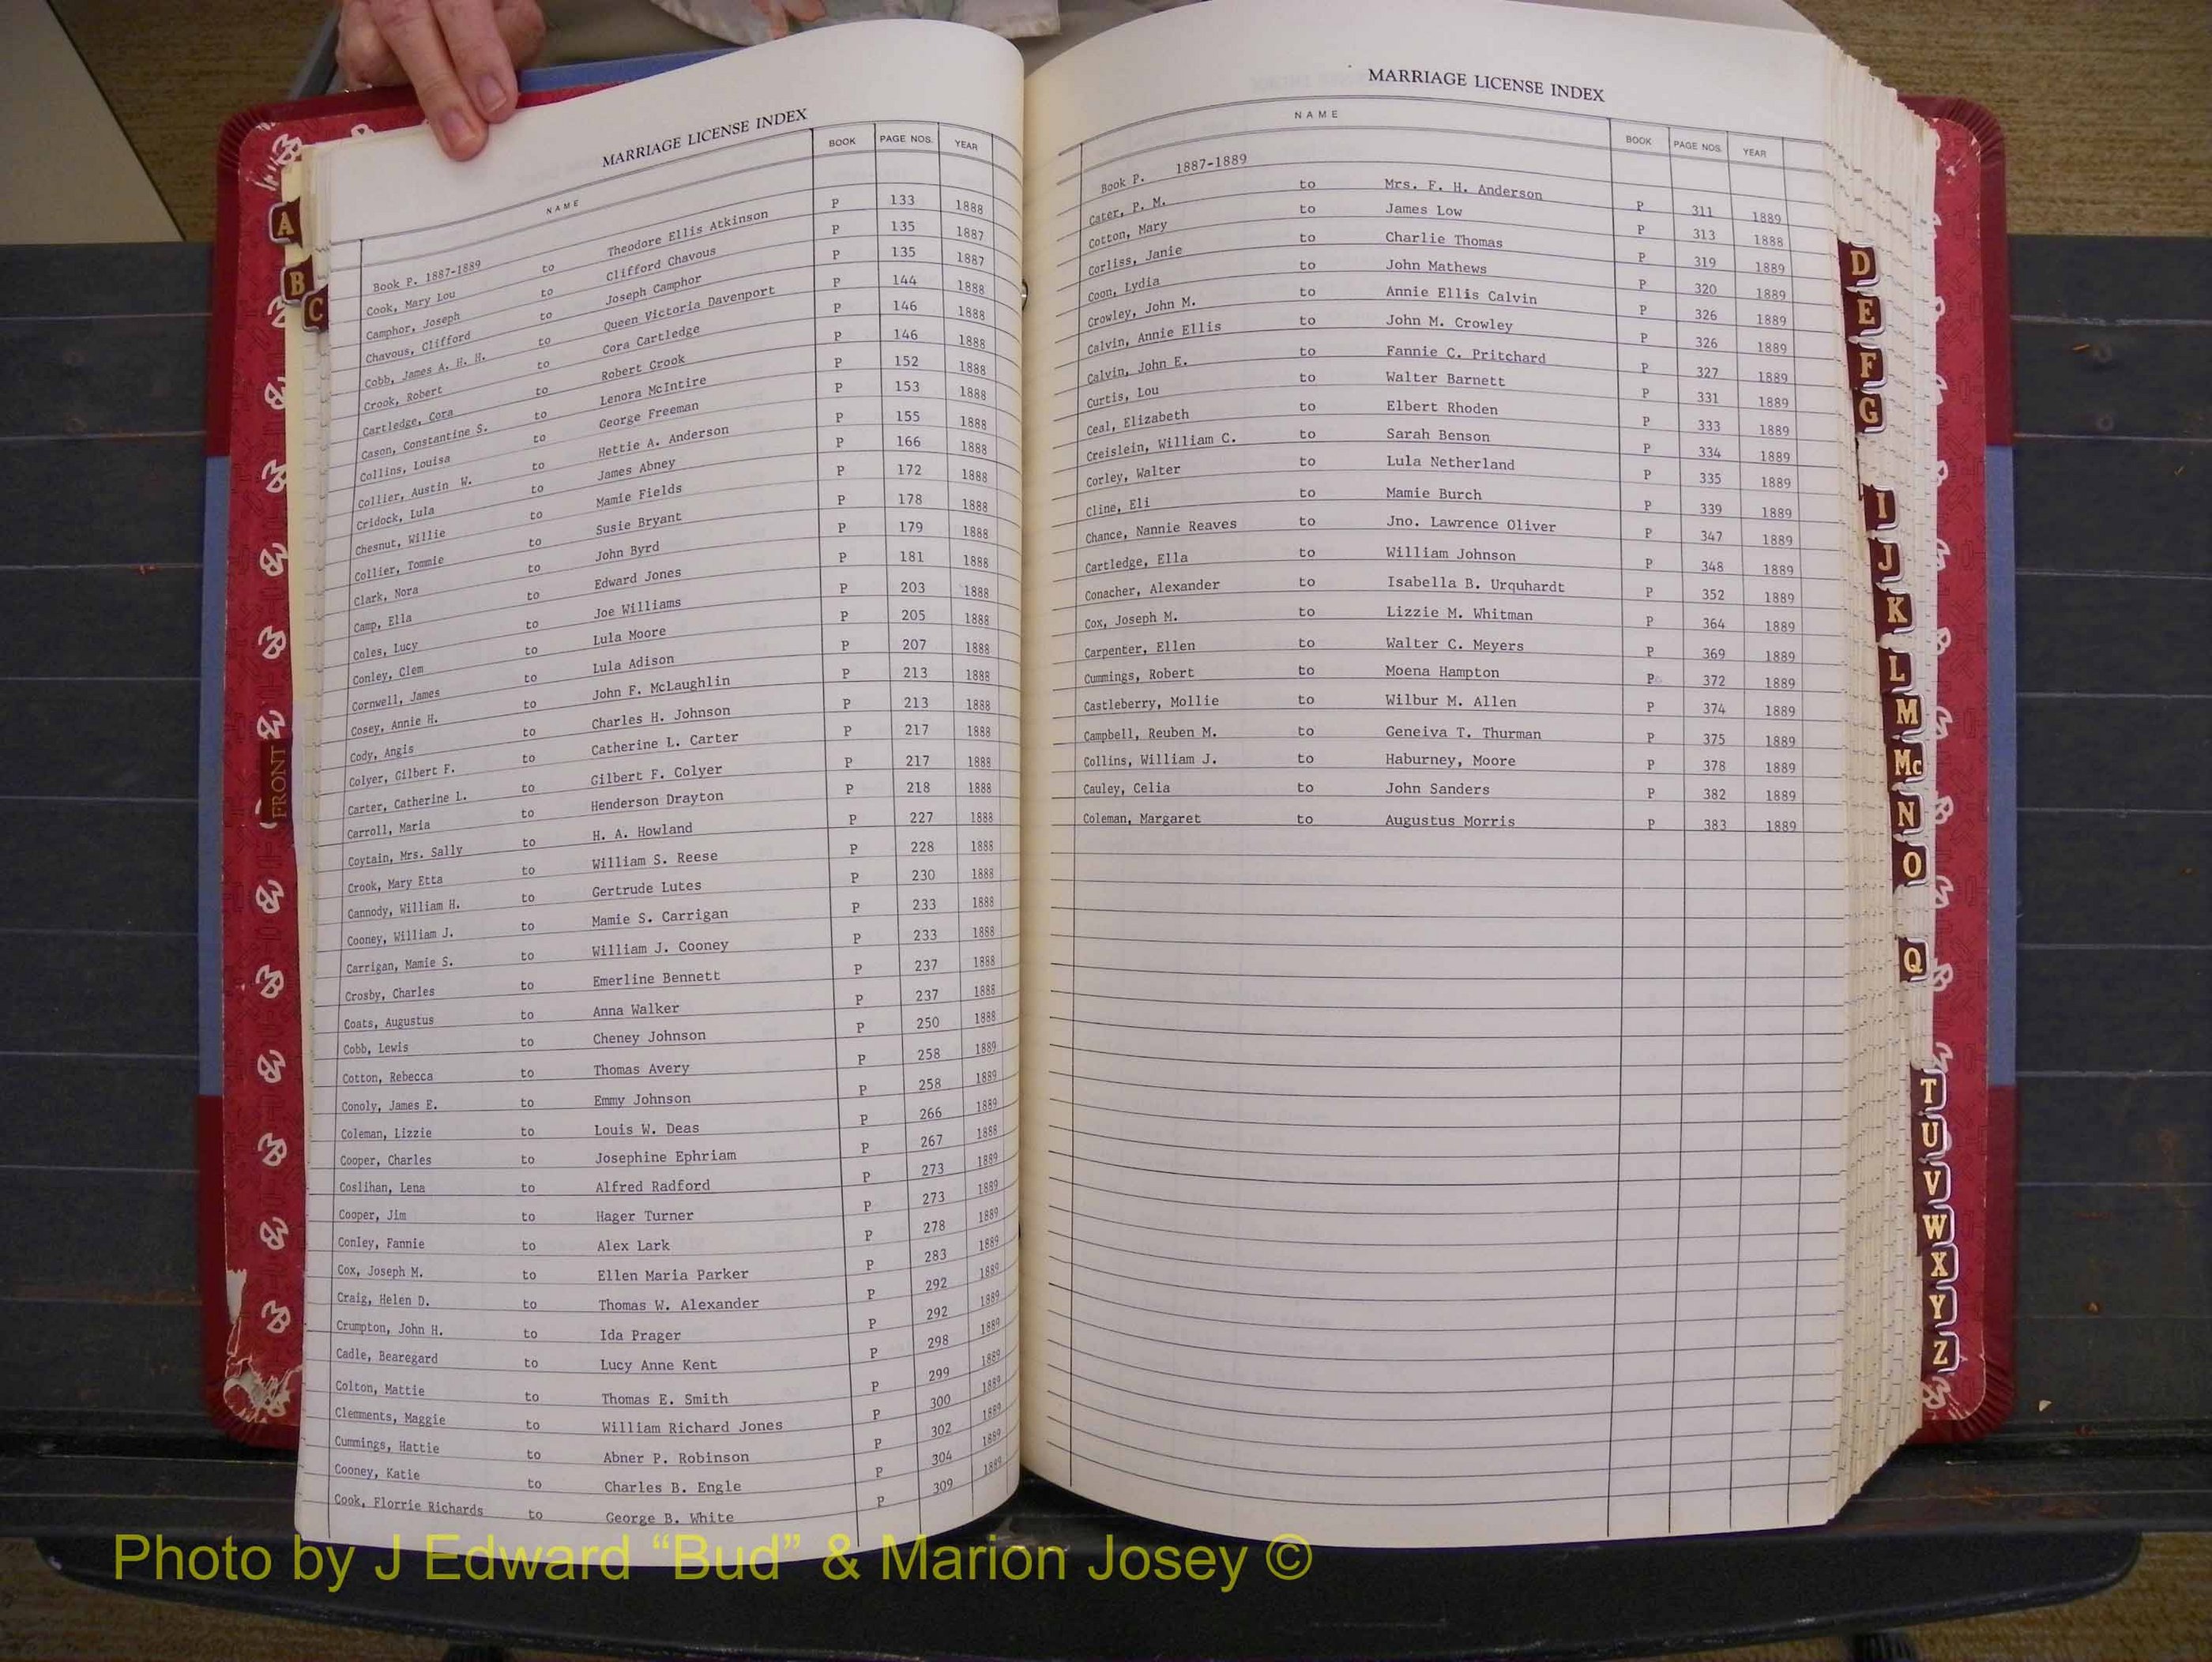 MARRIAGE LICENSE INDEX
NAME BOOK PAGE NOS. YEAR
Book P. 1887-1889
Cook, Mary Lou to Theodore Ellis Atkinson P 133 1888
Camphor, Joseph to Clifford Chavous P 135 1887
Chavous, Clifford to Joseph Camphor P 135 1887
Cobb, James A. H. H. to Queen Victoria Davenport P 144 1888
Crook, Robert to Cora Cartledge P 146 1888
Cartledge, Cora to Robert Crook P 146 1888
Cason, Constantine S. to Lenora McIntire P 152 1888
Collins, Louisa to George Freeman P 153 1888
Collier, Austin W. to Hettie A. Anderson P 155 1888
Cridock, Lula to James Abney P 166 1888
Chesnut, Willie to Mamie Fields P 172 1888
Collier, Tommie to Susie Bryant P 178 1888
Clark, Nora to John Byrd P 179 1888
Camp, Ella to Edward Jones P 181 1888
Coles, Lucy to Joe Williams P 203 1888
Conley, Clem to Lula Moore P 205 1888
Cornwell, James to Lula Adison P 207 1888
Cosey, Annie H. to John F. McLaughlin P 213 1888
Cody, Angis to Charles H. Johnson P 213 1888
Colyer, Gilbert F. to Catherine L. Carter P 217 1888
Carter, Catherine L. to Gilbert F. Colyer P 217 1888
Carroll, Maria to Henderson Drayton P 218 1888
Coytain, Mrs. Sally to H. A. Howland P 227 1888
Crook, Mary Etta to William S. Reese P 228 1888
Cannody, William H. to Gertrude Lutes P 230 1888
Cooney, William J. to Mamie S. Carrigan P 233 1888
Carrigan, Mamie S. to William J. Cooney P 233 1888
Crosby, Charles to Emerline Bennett P 237 1888
Coats, Augustus to Anna Walker P 237 1888
Cobb, Lewis to Cheney Johnson P 250 1888
Cotton, Rebecca to Thomas Avery P 258 1889
Conoly, James E. to Emmy Johnson P 258 1889
Coleman, Lizzie to Louis W. Deas P 266 1889
Cooper, Charles to Josephine Ephriam P 267 1888
Coslihan, Lena to Alfred Radford P 273 1889
Cooper, Jim to Hager Turner P 273 1889
Conley, Fannie to Alex Lark P 278 1889
Cox, Joseph M. to Ellen Maria Parker P 283 1889
Craig, Helen D. to Thomas W. Alexander P 292 1889
Crumpton, John H. to Ida Prager P 292 1889
Cadle, Bearegard to Lucy Anne Kent P 298 1889
Colton, Mattie to Thomas E. Smith P 299 1889
Clemments, Maggie to William Richard Jones P 300 1889
Cummings, Hattie to Abner P. Robinson P 302 1889
Cooney, Katie to Charles B. Engle P 304 1889
Cook, Florrie Richards to George B. White P 309 1889
MARRIAGE LICENSE INDEX
NAME BOOK PAGE NOS. YEAR
Book P. 1887-1889
Cater, P. M. to Mrs. F. H. Anderson P 311 1889
Cotton, Mary to James Low P 313 1888
Corliss, Janie to Charlie Thomas P 319 1889
Coon, Lydia to John Mathews P 320 1889
Crowley, John M. to Annie Ellis Calvin P 326 1889
Calvin, Annie Ellis to John M. Crowley P 326 1889
Calvin, John E. to Fannie C. Pritchard P 327 1889
Curtis, Lou to Walter Barnett P 331 1889
Ceal, Elizabeth to Elbert Rhoden P 333 1889
Creislein, William C. to Sarah Benson P 334 1889
Corley, Walter to Lula Netherland P 335 1889
Cline, Eli to Mamie Burch P 339 1889
Chance, Nannie Reaves to Jno. Lawrence Oliver P 347 1889
Cartledge, Ella to William Johnson P 348 1889
Conacher, Alexander to Isabella B. Urquhardt P 352 1889
Cox, Joseph M. to Lizzie M. Whitman P 364 1889
Carpenter, Ellen to Walter C. Meyers P 369 1889
Cummings, Robert to Moena Hampton P 372 1889
Castleberry, Mollie to Wilbur M. Allen P 374 1889
Campbell, Reuben M. to Geneiva T. Thurman P 375 1889
Collins, William J. to Haburney, Moore P 378 1889
Cauley, Celia to John Sanders P 382 1889
Coleman, Margaret to Augustus Morris P 383 1889
A
B
C
FRONT
D
E
F
G
I
J
K
L
M
Mc
N
O
Q
T
U
V
W
X
Y
Z
Photo by J Edward “Bud” & Marion Josey ©